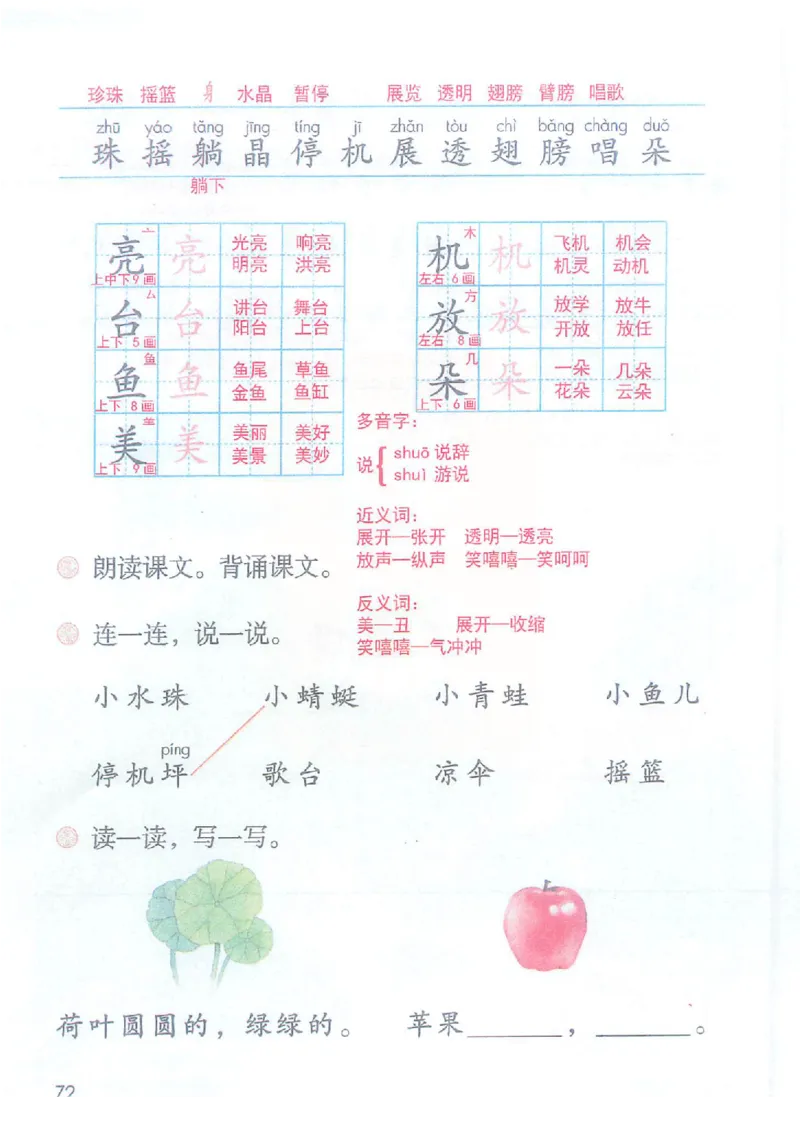 珍珠 摇篮 身 水晶 暂停 展览 透明 翅膀 臂膀 唱歌
zhū yáo tǎng jīng tíng jī zhǎn tòu chì bǎng chàng duǒ
珠 摇 躺 晶 停 机 展 透 翅 膀 唱 朵
躺下
亮 亠 上中下9画 亮 光亮 响亮
明亮 洪亮
台 厶 上下 5画 台 讲台 舞台
阳台 上台
鱼 鱼 上下 8画 鱼 鱼尾 草鱼
金鱼 鱼缸
美 上下 9画 美 美丽 美好
美景 美妙
机 木 左右 6画 机 飞机 机会
机灵 动机
放 方 左右 8画 放 放学 放牛
开放 放任
朵 几 上下 6画 朵 一朵 几朵
花朵 云朵
多音字：
说 { shuō 说辞
shuì 游说
近义词：
展开—张开 透明—透亮
放声—纵声 笑嘻嘻—笑呵呵
反义词：
美—丑 展开—收缩
笑嘻嘻—气冲冲
朗读课文。背诵课文。
连一连，说一说。
小水珠 小蜻蜓 小青蛙 小鱼儿
píng
停机坪 歌台 凉伞 摇篮
读一读，写一写。
荷叶圆圆的，绿绿的。 苹果______，______。
72